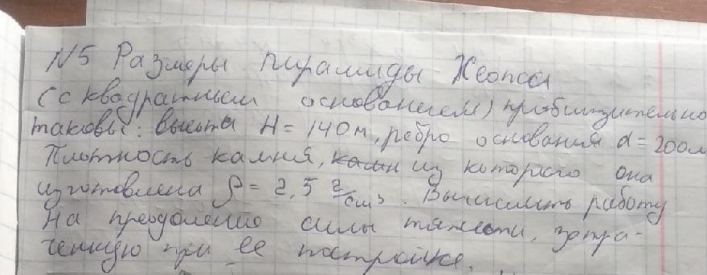 N5 Размеры пирамиды Хеопса
(с квадратным основанием) приблизительно
таковы: высота H = 140м, ребро основания a = 200м
Плотность камня, из которого она
изготовлена ρ = 2,5 г/см³. Вычислить работу
на преодоление силы тяжести, затра-
ченную при ее постройке.